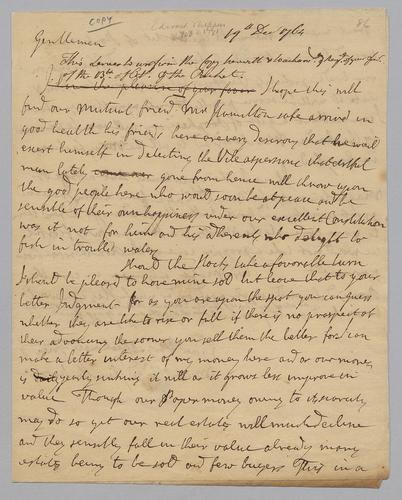 COPY
19th Decr 1764
86
Gentlemen
This serves to inclose the Copy
I hope this will
find our mutual friend Mr Hamilton safe arrived in
good health his friends here are very desirous that he would
exert himself in detecting the Vile aspersions that artful
man lately come over gone from hence will throw upon
the good people here who would soon be at peace and be
sensible of their own happiness under our excellent Constitution
was it not for him and his adherents who delight to
fish in troubled water
Should the Stocks take a favorable turn
I should be pleased to have mine sold but leave that to your
better Judgment for as you are upon the spot you can guess
whether they are like to rise or fall if there is no prospect of
their advancing the sooner you sell them the better for I can
make a better interest of my money here and as our money
is daily sinking it will as it grows less improve in
value Though our Paper money owing to its scarcity
may do so yet our real estates will much decline
and they sensibly fall in their value already many
estates being to be sold and few buyers This in a